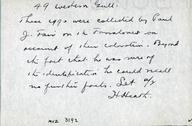 49 Western Gull.
These eggs were collected by Paul
J. Fair on the Farallones on
account of their coloration. Beyond
the fact that he was sure of
the identification he could recall
no further facts. Set a/3
H Heath.
MVZ 3192